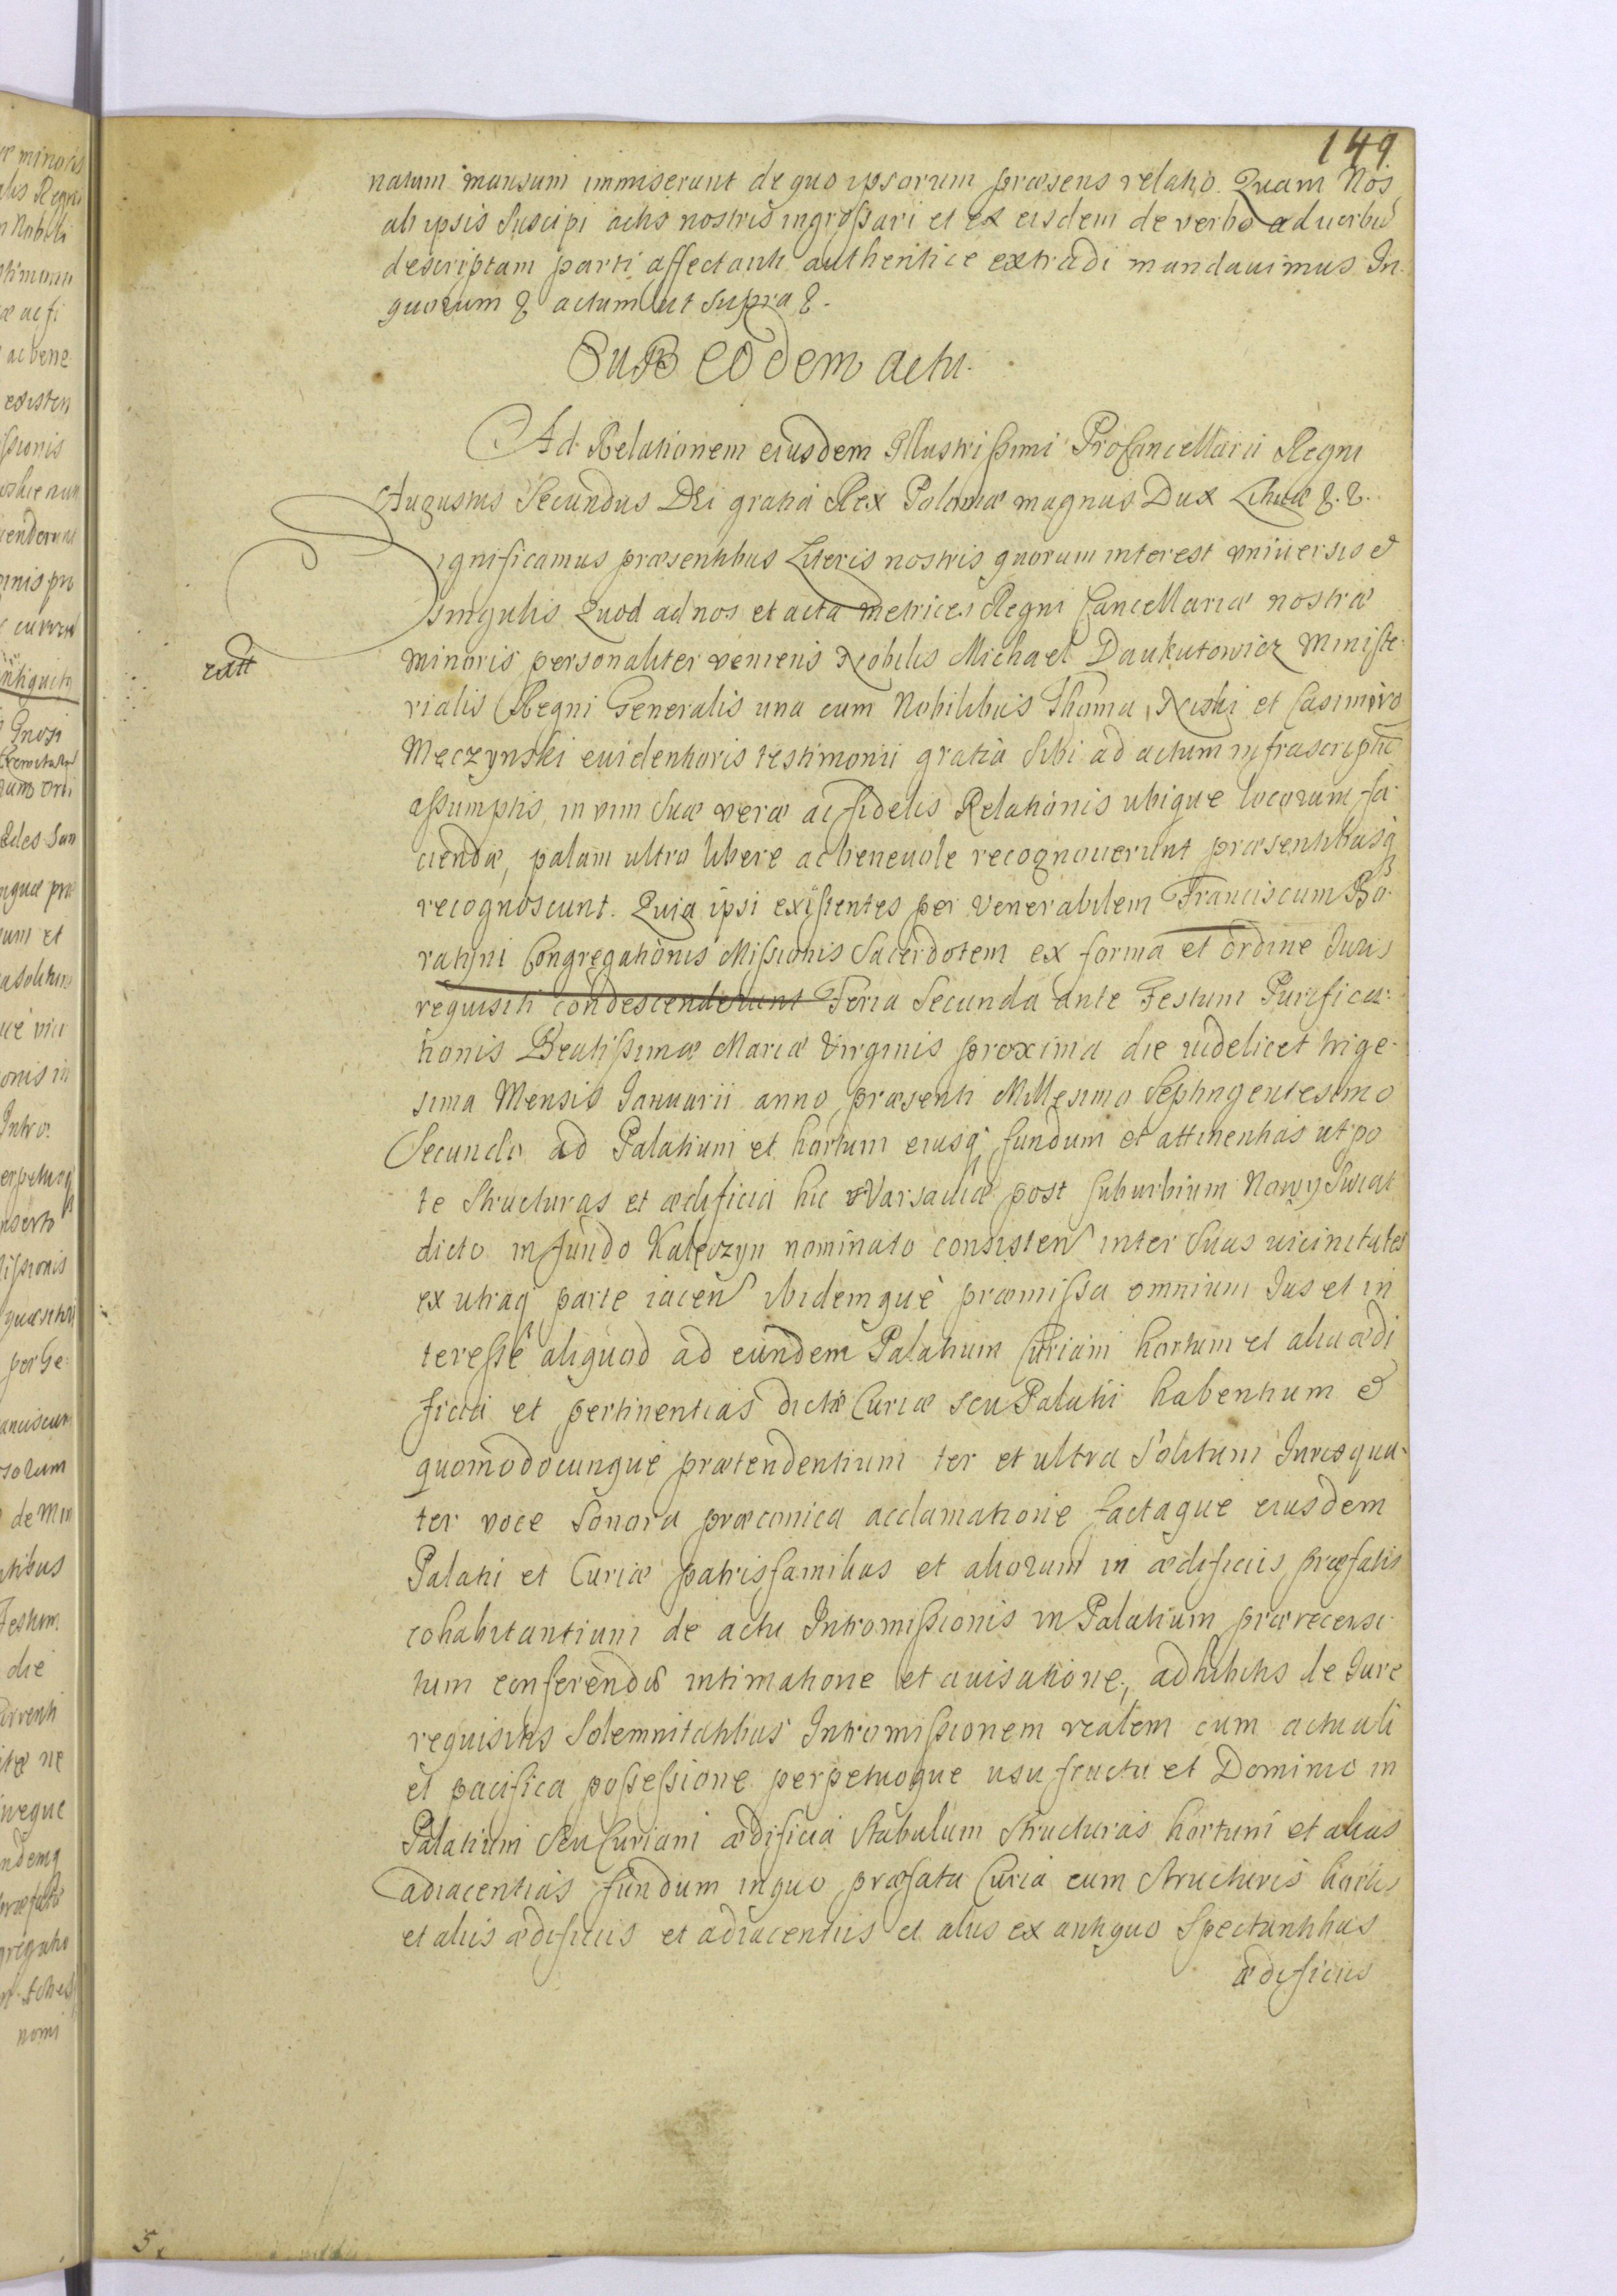 149.
natum mansum immiserunt de quo ipsorum præsens relatio. Quam Nos
ab ipsis suscipi actis nostris ingrossari et ex eisdem de verbo ad verbū
descriptam parti affectanti authentice extradi mandauimus In
quorum & actum ut supra &.
Sub eodem actu.
Ad Relationem eiusdem Illustrissimi ProCancellarii Regni
Augustus Secundus Dei gratia Rex Poloniæ magnus Dux Lithuæ &. &.
Significamus præsentibus Literis nostris quorum interest vniuersis et
singulis Quod ad nos et acta metrices Regni Cancellariæ nostræ
minoris personaliter veniens Nobilis Michael Daukutowicz Ministe-
rialis Regni Generalis una cum Nobilibus Thoma Niski et Casimiro
Męczynski euidentioris testimonii gratia sibi ad actum infrascriptū
assumptis, in vim suæ veræ ac fidelis Relationis ubique locorum fa-
ciendæ, palam ultro libere ac beneuole recognouerunt præsentibusq
recognoscunt. Quia ipsi existentes per Venerabilem Franciscum Bo-
ratyni Congregationis Missionis Sacerdotem ex forma et ordine Iuris
requisiti condescenderunt Feria Secunda ante Festum Purifica-
tionis Beatissimæ Mariæ Virginis proxima die videlicet trige-
sima Mensis Januarii anno præsenti Millesimo Septingentesimo
Secundo ad Palatium et hortum eiusq fundum et attinentias utpo
te structuras et ædificia hic Varsauiæ post suburbium Nowy Swiat
dicto in fundo Kałęczyn nominato consisten inter suas vicinitates
ex utraq parte iacen ibidemque præmissa omnium Ius et in
teresse aliquod ad eundem Palatium Curiam hortum et alia ædi
ficia et pertinentias dictæ Curiæ seu Palatii habentium et
quomodocunque prætendentium ter et ultra solitum Iuris qua-
ter voce sonora præconica acclamatione factaque eiusdem
Palatii et Curiæ patrisfamilias et aliorum in ædificiis præfatis
cohabitantium de actu Intromissionis in Palatium prærecensi-
tum conferendæ intimatione et auisatione, adhibitis de Iure
requisitis Solemnitatibus Intromissionem realem cum actuali
et pacifica possessione perpetuoque usu fructu et Dominio in
Palatium Seu Curiam ædificia Stabulum Structuras hortum et alias
adiacentias fundum in quo præfata Curia cum Structuris hortis
et aliis ædificiis et adiacentiis et aliis ex antiquo Spectantibus
ædificiis
5